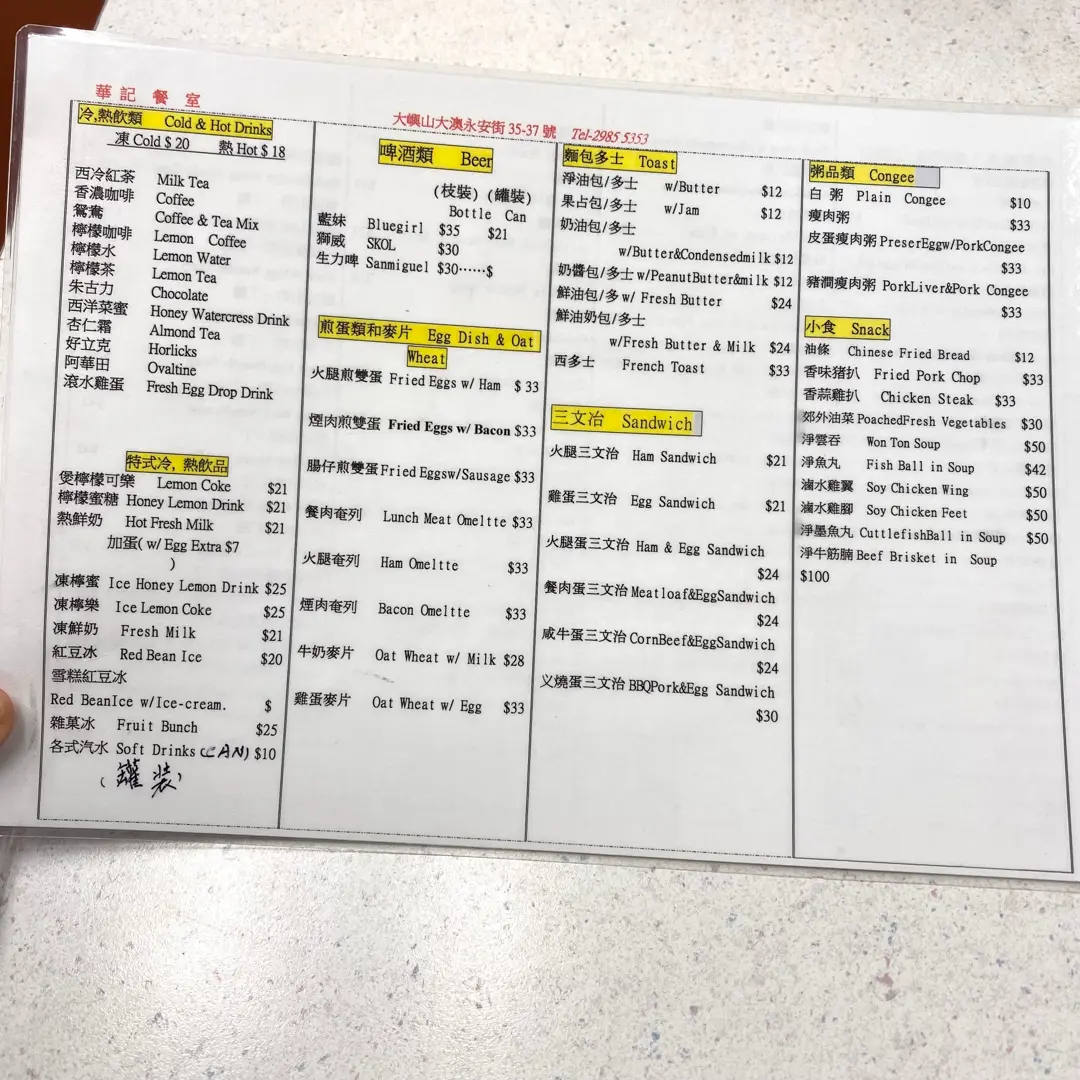 華記餐室
大嶼山大澳永安街 35-37 號 Tel-2985 5353
冷,熱飲類 Cold & Hot Drinks
凍 Cold $ 20 熱 Hot $ 18
西冷紅茶 Milk Tea
香濃咖啡 Coffee
鴛鴦 Coffee & Tea Mix
檸檬咖啡 Lemon Coffee
檸檬水 Lemon Water
檸檬茶 Lemon Tea
朱古力 Chocolate
西洋菜蜜 Honey Watercress Drink
杏仁霜 Almond Tea
好立克 Horlicks
阿華田 Ovaltine
滾水雞蛋 Fresh Egg Drop Drink
特式冷, 熱飲品
煲檸檬可樂 Lemon Coke $21
檸檬蜜糖 Honey Lemon Drink $21
熱鮮奶 Hot Fresh Milk $21
加蛋( w/ Egg Extra $7
)
凍檸蜜 Ice Honey Lemon Drink $25
凍檸樂 Ice Lemon Coke $25
凍鮮奶 Fresh Milk $21
紅豆冰 Red Bean Ice $20
雪糕紅豆冰
Red BeanIce w/Ice-cream. $
雜菓冰 Fruit Bunch $25
各式汽水 Soft Drinks (CAN) $10
(罐裝)
啤酒類 Beer
(枝裝) (罐裝)
Bottle Can
藍妹 Bluegirl $35 $21
獅威 SKOL $30
生力啤 Sanmiguel $30······$
煎蛋類和麥片 Egg Dish & Oat
Wheat
火腿煎雙蛋 Fried Eggs w/ Ham $ 33
煙肉煎雙蛋 Fried Eggs w/ Bacon $33
腸仔煎雙蛋 Fried Eggsw/Sausage $33
餐肉奄列 Lunch Meat Omeltte $33
火腿奄列 Ham Omeltte $33
煙肉奄列 Bacon Omeltte $33
牛奶麥片 Oat Wheat w/ Milk $28
雞蛋麥片 Oat Wheat w/ Egg $33
麵包多士 Toast
淨油包/多士 w/Butter $12
果占包/多士 w/Jam $12
奶油包/多士
w/Butter&Condensedmilk $12
奶醬包/多士 w/PeanutButter&milk $12
鮮油包/多 w/ Fresh Butter $24
鮮油奶包/多士
w/Fresh Butter & Milk $24
西多士 French Toast $33
三文冶 Sandwich
火腿三文治 Ham Sandwich $21
雞蛋三文治 Egg Sandwich $21
火腿蛋三文治 Ham & Egg Sandwich
$24
餐肉蛋三文治 Meatloaf&EggSandwich
$24
咸牛蛋三文治 CornBeef&EggSandwich
$24
义燒蛋三文治 BBQPork&Egg Sandwich
$30
粥品類 Congee
白 粥 Plain Congee $10
瘦肉粥 $33
皮蛋瘦肉粥 PreserEggw/PorkCongee
$33
豬潤瘦肉粥 PorkLiver&Pork Congee
$33
小食 Snack
油條 Chinese Fried Bread $12
香味猪扒 Fried Pork Chop $33
香蒜雞扒 Chicken Steak $33
郊外油菜 PoachedFresh Vegetables $30
淨雲吞 Won Ton Soup $50
淨魚丸 Fish Ball in Soup $42
滷水雞翼 Soy Chicken Wing $50
滷水雞腳 Soy Chicken Feet $50
淨墨魚丸 CuttlefishBall in Soup $50
淨牛筋腩 Beef Brisket in Soup
$100